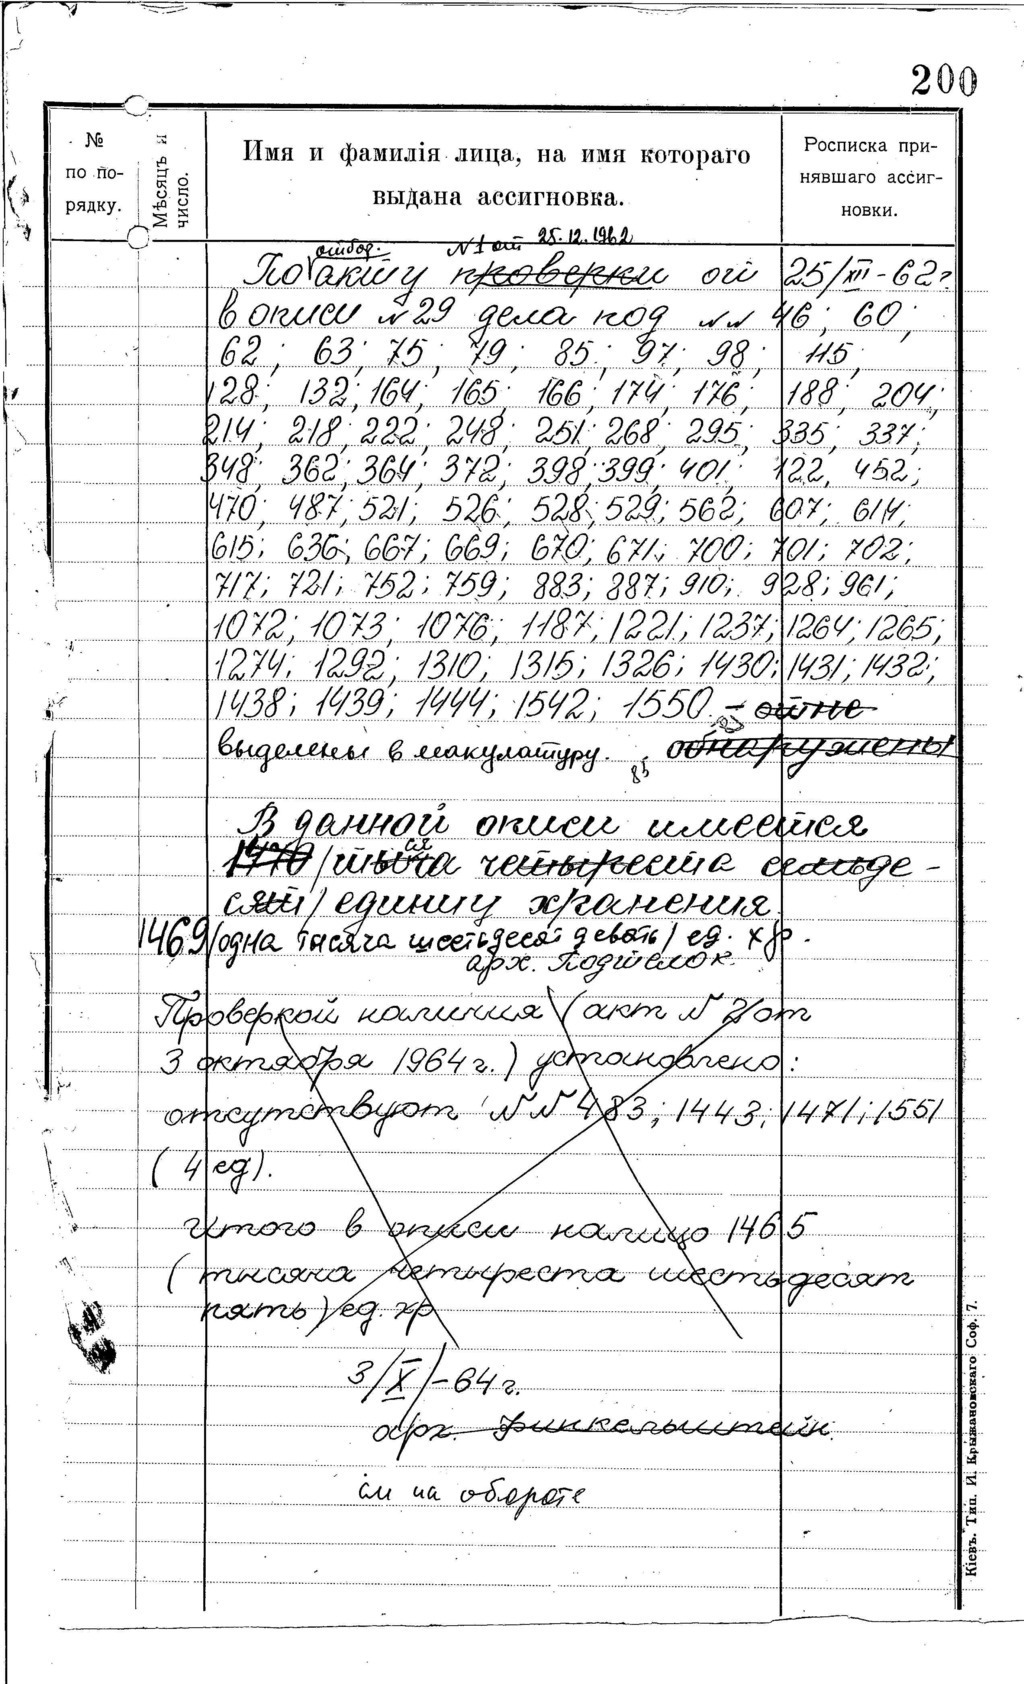 200
№ по порядку.
Мѣсяцъ и число.
Имя и фамилія лица, на имя котораго выдана ассигновка.
Росписка принявшаго ассигновки.
отбор. N 1 от 25.12.1962
По акту проверки от 25/XII-62г
в описи № 29 дела под №№ 46; 60;
62; 63; 75; 79; 85; 97; 98; 115;
128; 132; 164; 165; 166; 174; 176; 188; 204;
214; 218; 222; 248; 251; 268; 295; 335; 337;
348; 362; 364; 372; 398; 399; 401; 422, 452;
470; 487; 521; 526; 528; 529; 562; 607; 614;
615; 636; 667; 669; 670; 671; 700; 701; 702;
717; 721; 752; 759; 883; 887; 910; 928; 961;
1072; 1073; 1076; 1187; 1221; 1237; 1264; 1265;
1274; 1292; 1310; 1315; 1326; 1430; 1431; 1432;
1438; 1439; 1444; 1542; 1550 –
выделены в макулатуру. обнаружены
85
В данной описи имеется
1470 /тысяча четыреста семьде-
сят/ единиц хранения
1469 /одна тысяча шестьдесят девять/ ед. хр.
арх. Подшелок.
Проверкой наличия (акт № 2 от
3 октября 1964 г.) установлено:
отсутствуют №№ 483; 1443; 1471; 1551
(4 ед).
Итого в описи налицо 1465
(тысяча четыреста шестьдесят
пять) ед. хр
3/X-64 г.
арх. Финкельштейн.
см на обороте
Кіевъ. Тип. И. Крыжановскаго Соф. 7.